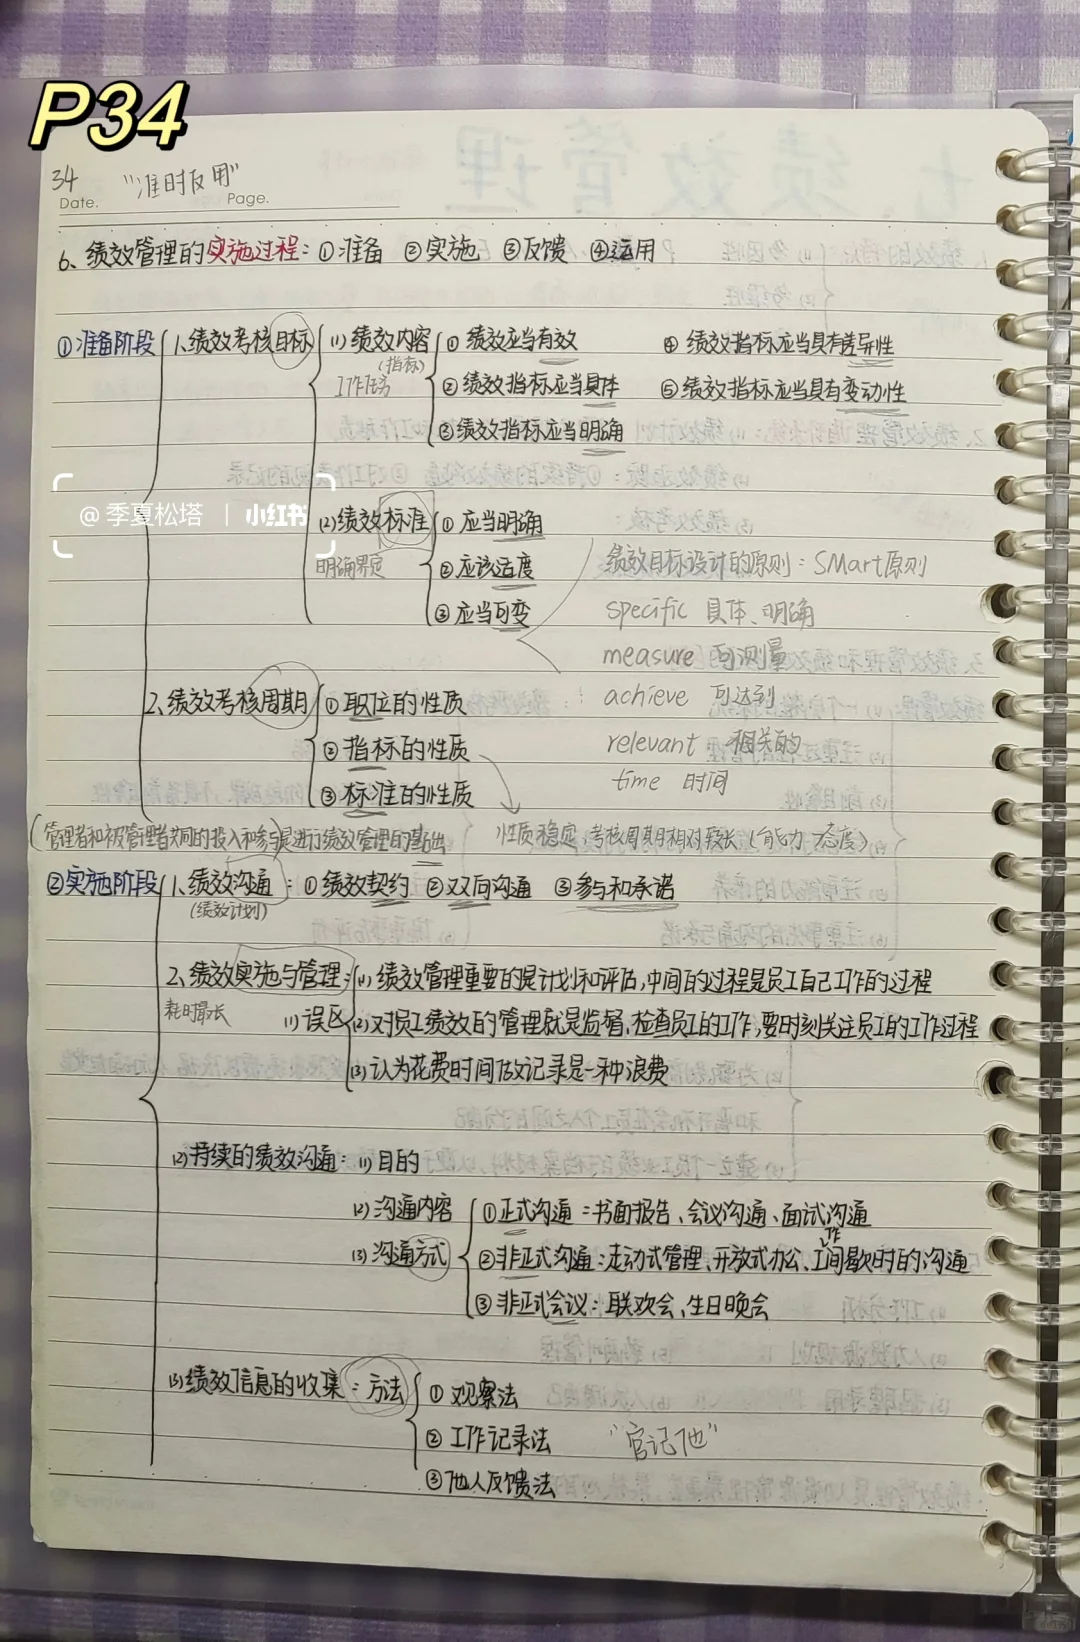 P34
34 "准时反用"
Date. Page.
6、绩效管理的实施过程：①准备 ②实施 ③反馈 ④运用
①准备阶段 1、绩效考核目标 (1) 绩效内容 ① 绩效应当有效 ④ 绩效指标应当具有差异性
(指标)
工作任务 ② 绩效指标应当具体 ⑤ 绩效指标应当具有变动性
③ 绩效指标应当明确
@季夏松塔 | 小红书
(2) 绩效标准 ① 应当明确
明确界定 ② 应该适度
③ 应当可变
绩效目标设计的原则：SMart原则
specific 具体、明确
measure 可测量
achieve 可达到
relevant 相关的
time 时间
2、绩效考核周期 ① 职位的性质
② 指标的性质
③ 标准的性质
性质稳定，考核周期相对较长（能力、态度）
(管理者和被管理者共同的投入和参与是进行绩效管理的基础
②实施阶段 1、绩效沟通：①绩效契约 ②双向沟通 ③参与和承诺
(绩效计划)
2、绩效实施与管理：(1) 绩效管理重要的是计划和评估，中间的过程是员工自己工作的过程
耗时最长 (1) 误区 (2) 对员工绩效的管理就是监督，检查员工的工作，要时刻关注员工的工作过程
(3) 认为花费时间做记录是一种浪费
(2) 持续的绩效沟通：(1) 目的
(2) 沟通内容 ①正式沟通：书面报告、会议沟通、面试沟通
(3) 沟通方式 ②非正式沟通：走动式管理、开放式办公、工作间歇时的沟通
③ 非正式会议：联欢会、生日晚会
(3) 绩效信息的收集：方法 ① 观察法
② 工作记录法 "官记他"
③他人反馈法